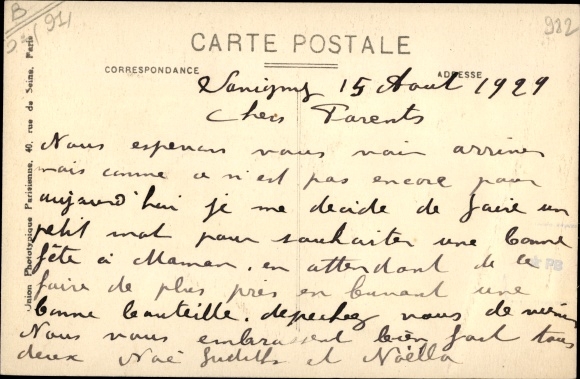 B
(91)
982
CARTE POSTALE
CORRESPONDANCE
ADRESSE
Savigny 15 Aout 1929
Chers Parents
Nous esperons vous voir arriver
mais comme ce n'est pas encore pour
aujourd'hui je me decide de faire un
petit mot pour souhaiter une bonne
fête à Maman. en attendant de le
faire de plus près en buvant une
bonne bouteille. depechez vous de venir
Nous vous embrassent bien fort tous
deux Noé Judith et Noëlla
Union Phototypique Parisienne, 40, rue de Seine, Paris